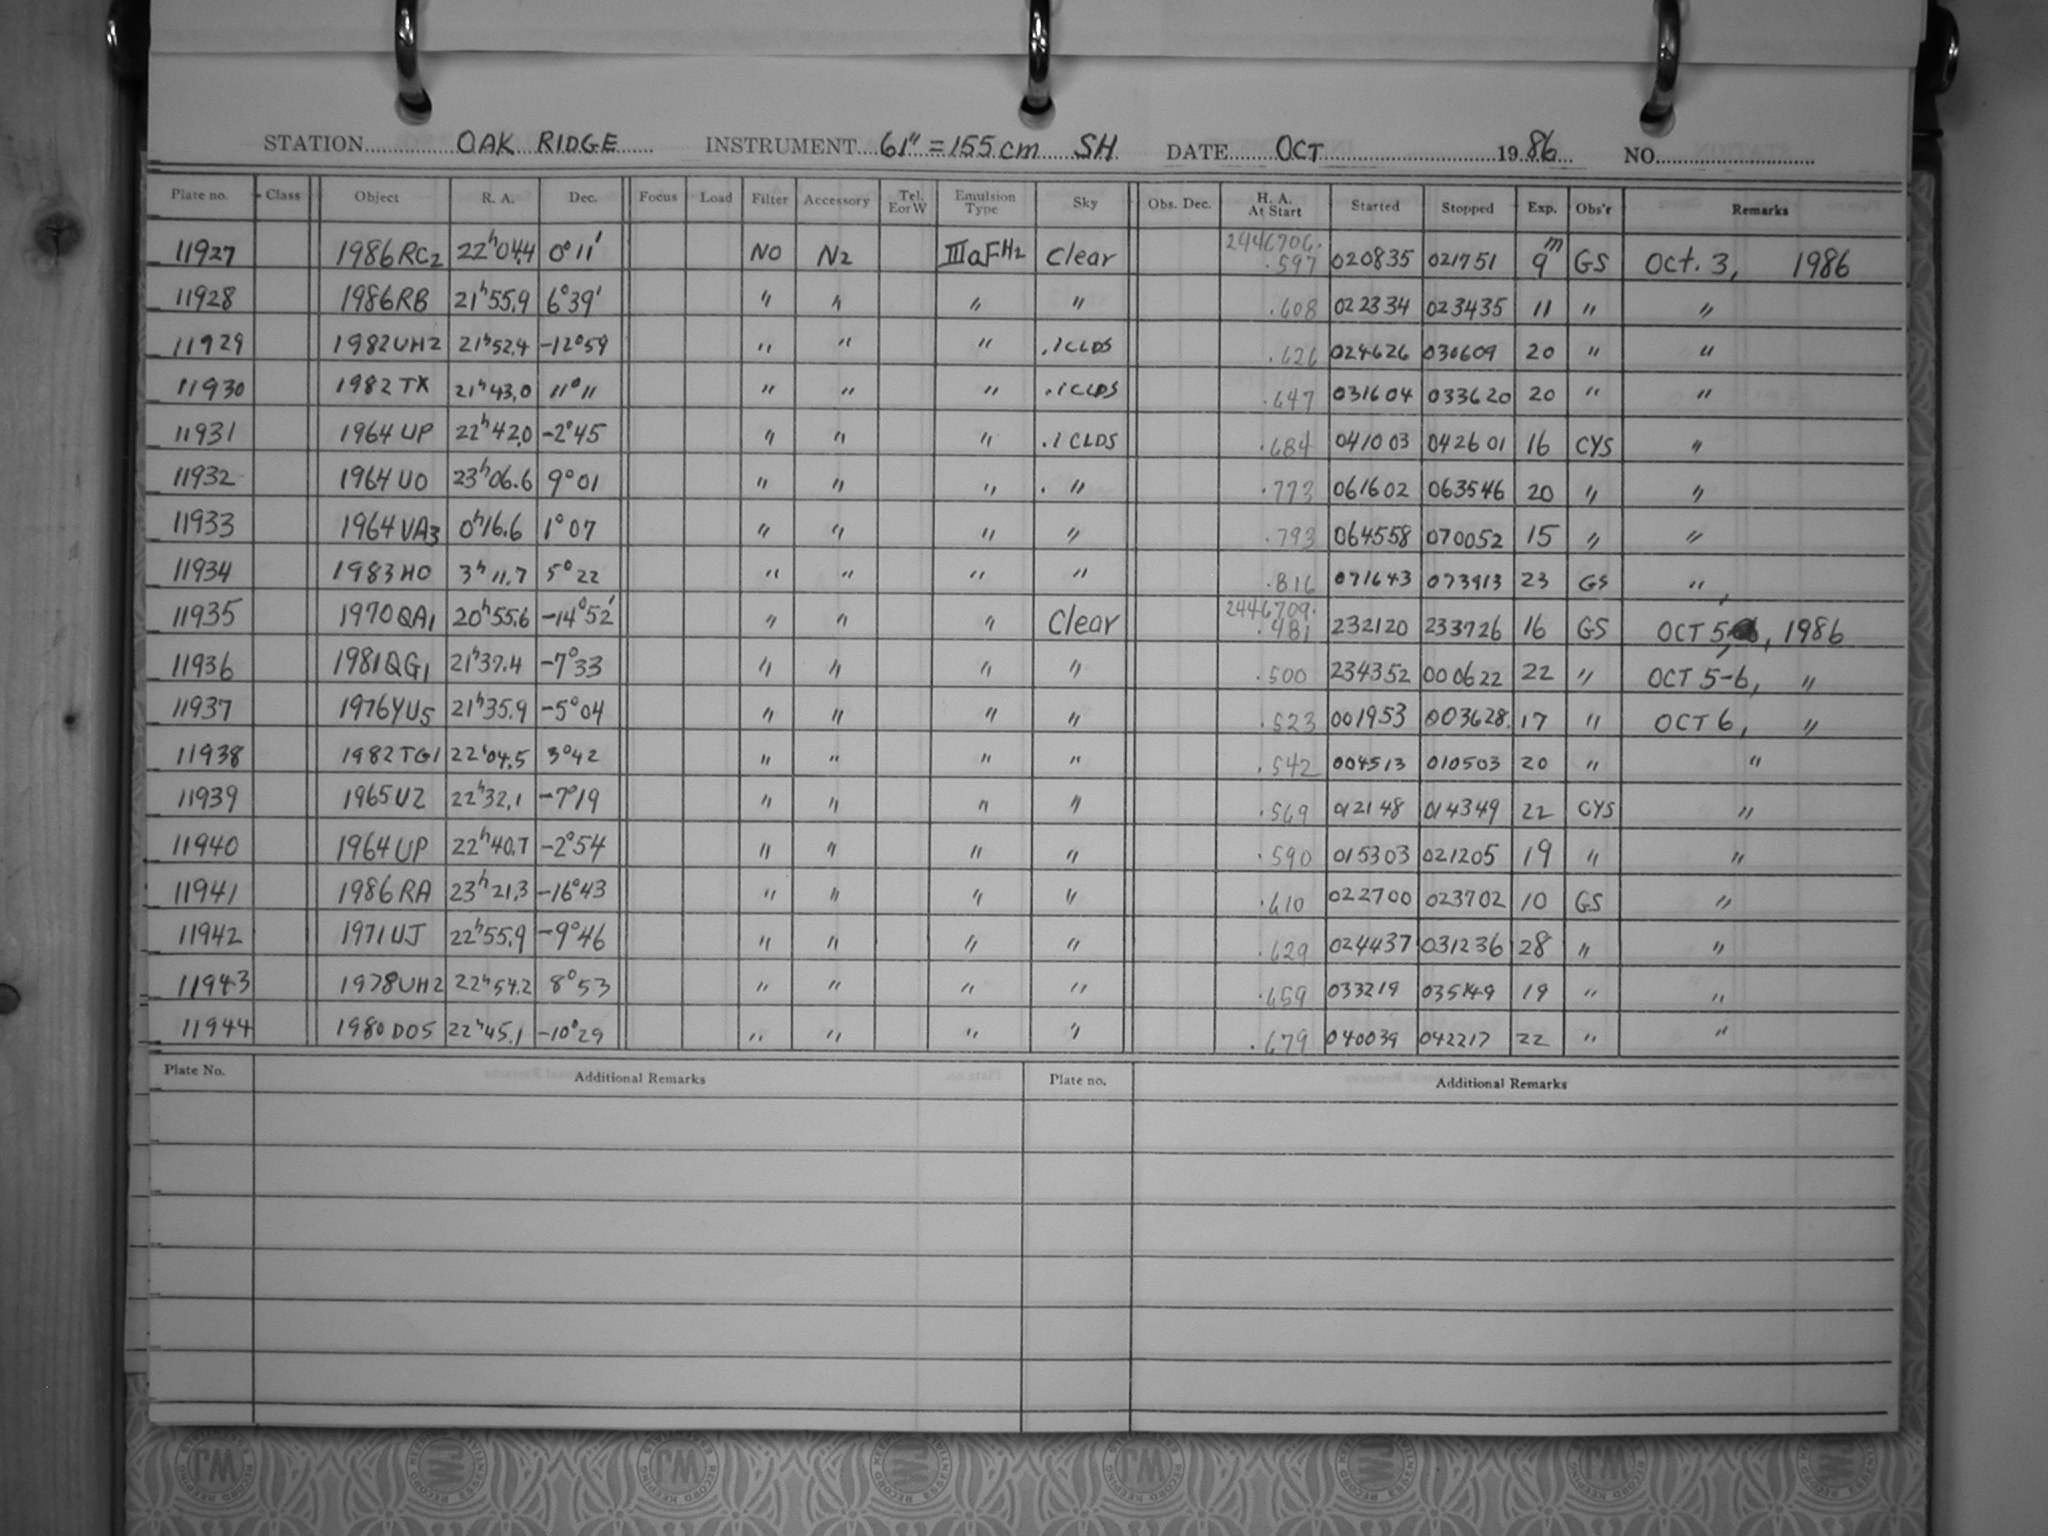 STATION OAK RIDGE INSTRUMENT 61" = 155 cm SH DATE OCT 1986 NO.
Plate no. Class Object R. A. Dec. Focus Load Filter Accessory Tel. E or W Emulsion Type Sky Obs. Dec. H. A. At Start Started Stopped Exp. Obs'r Remarks
11927 1986 RC2 22h 04.4 0° 11' NO N2 IIIaF H2 Clear 2446706. .597 020835 021751 9m GS Oct. 3, 1986
11928 1986 RB 21h 55.9 6° 39' " " " " .608 022334 023435 11 " "
11929 1982 UH2 21h 52.4 -12° 59 " " " .1 CLDS .626 024626 030609 20 " "
11930 1982 TX 21h 43.0 11° 11 " " " .1 CLDS .647 031604 033620 20 " "
11931 1964 UP 22h 42.0 -2° 45 " " " .1 CLDS .684 041003 042601 16 CYS "
11932 1964 UO 23h 06.6 9° 01 " " " . " .773 061602 063546 20 " "
11933 1964 VA3 0h 16.6 1° 07 " " " " .793 064558 070052 15 " "
11934 1983 HO 3h 11.7 5° 22 " " " " .816 071643 073913 23 GS "
11935 1970 QA1 20h 55.6 -14° 52' " " " Clear 2446709. .481 232120 233726 16 GS OCT 5, 1986
11936 1981 QG1 21h 37.4 -7° 33 " " " " .500 234352 000622 22 " OCT 5-6, "
11937 1976 YU5 21h 35.9 -5° 04 " " " " .523 001953 003628. 17 " OCT 6, "
11938 1982 TG1 22h 04.5 3° 42 " " " " .542 004513 010503 20 " "
11939 1965 UZ 22h 32.1 -7° 19 " " " " .569 012148 014349 22 CYS "
11940 1964 UP 22h 40.7 -2° 54 " " " " .590 015303 021205 19 " "
11941 1986 RA 23h 21.3 -16° 43 " " " " .610 022700 023702 10 GS "
11942 1971 UJ 22h 55.9 -9° 46 " " " " .629 024437 031236 28 " "
11943 1978 UH2 22h 54.2 8° 53 " " " " .659 033219 035149 19 " "
11944 1980 DO5 22h 45.1 -10° 29 " " " " .679 040039 042217 22 " "
Plate No. Additional Remarks Plate no. Additional Remarks